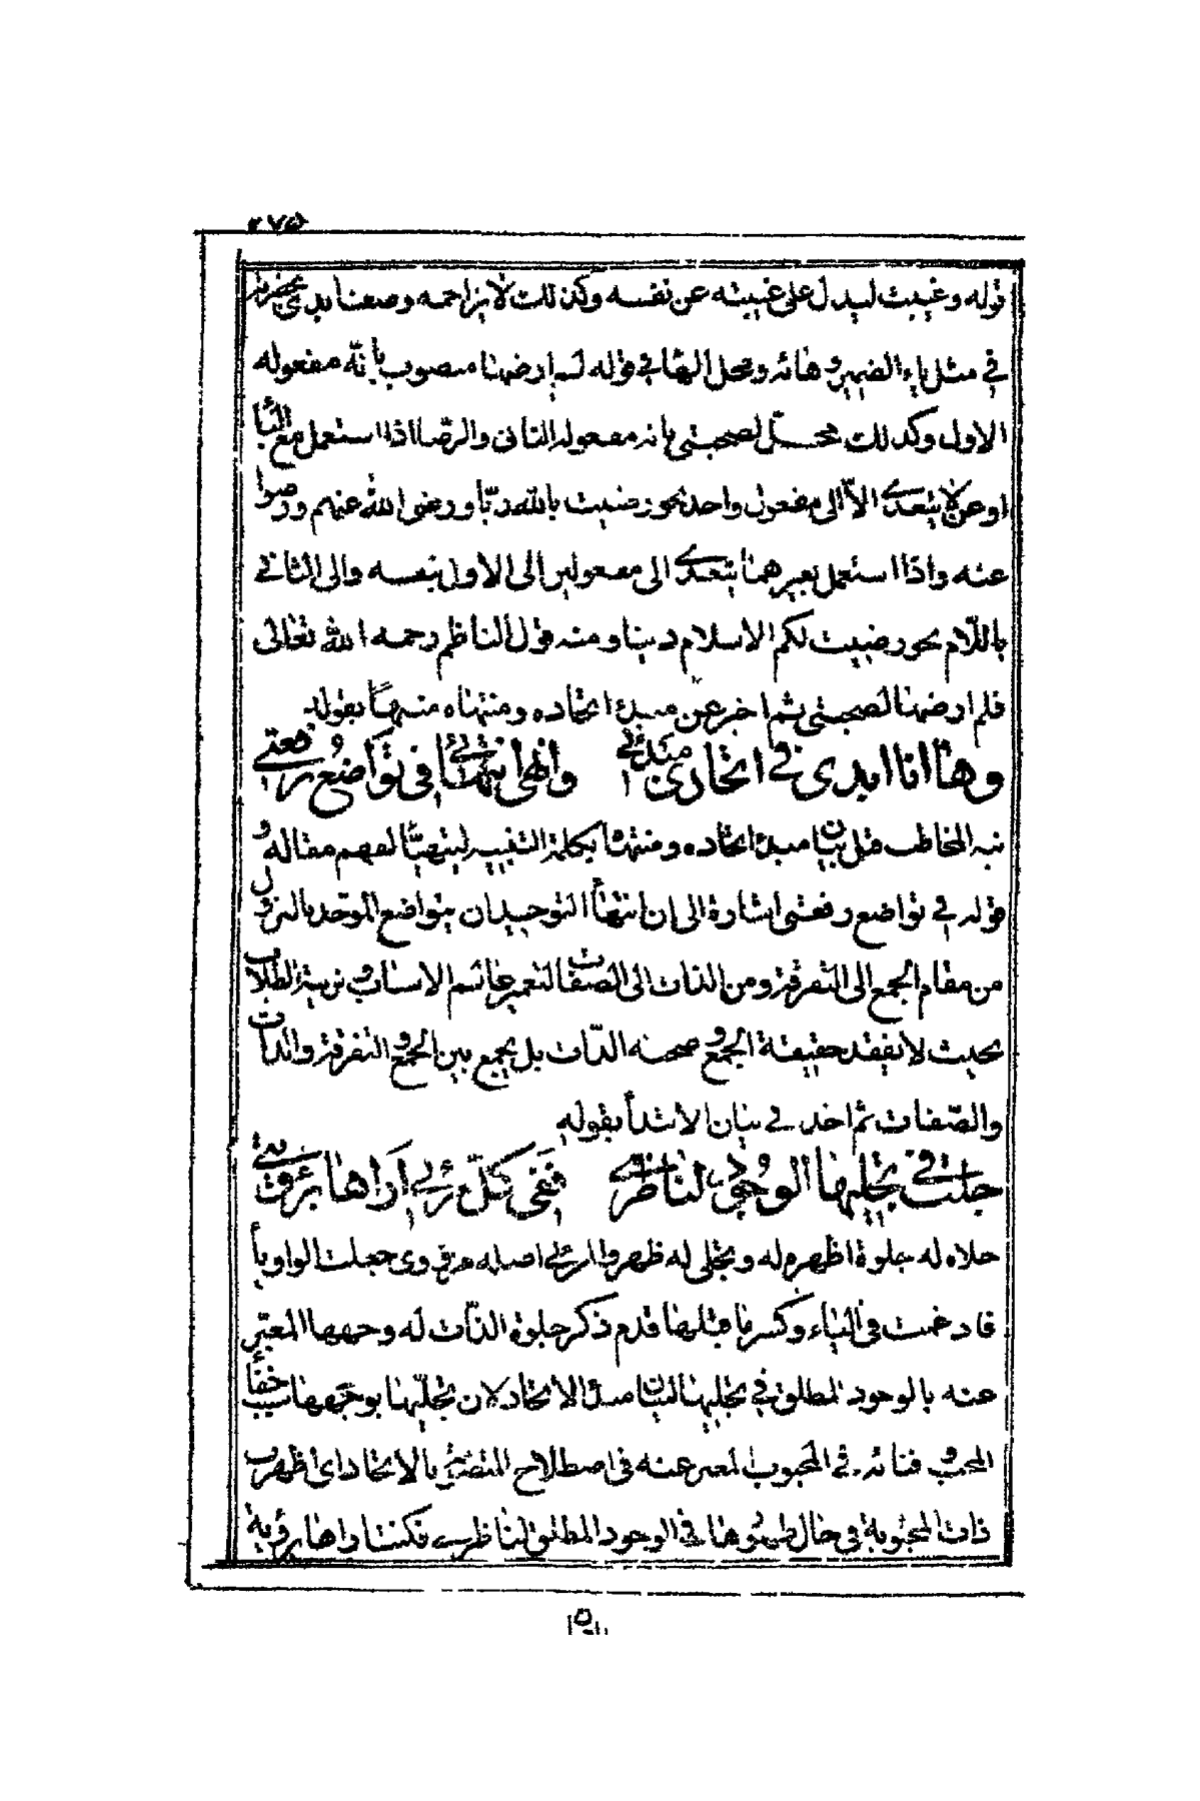 ٢٧٥
قوله وغيبت ليدل على غيبيته عن نفسه وكذلك لا يزاحمه وصفنا بدى بحضرته
في مثل ياء الضمير وهائه ومحل الها في قوله لم ارضها منصوب بأنّه مفعوله
الاول وكذلك محل لصحبتى بانه مفعوله الثانى والرضا اذا استعمل مع البا
او عن لا يتعدى الاّ الى مفعول واحد نحو رضيت بالله ربّا ورضى الله عنهم ورضوا
عنه واذا استعمل بغيرهما يتعدى الى مفعولين الى الاول بنفسه والى الثانى
باللام نحو رضيت لكم الاسلام دينا ومنه قول الناظم رحمه الله تعالى
فلم ارضها لصحبتى ثم اخبر عن مبدء اتحاده ومنتهاه منبها بقوله
وها انا ابدى فى اتحادى مبدئى وانهى انتهائى فى تواضع رفعتى
نبه المخاطب قبل بيان مبدء اتحاده ومنتهاه بكلمة التنبيه ليتهيّأ لفهم مقاله و
قوله في تواضع رفعتى اشارة الى ان انتهاء التوحيد ان يتواضع الموحّد بالنزول
من مقام الجمع الى التفرقة ومن الذات الى الصفات لتعمير عالم الاسباب وتربية الطلاب
بحيث لا يفقد حقيقة الجمع و صحنه الذات بل يجمع بين الجمع و التفرقة والذات
والصّفات ثم اخذ في بيان الابتدأ بقوله
جلت فى تجليها الوجود لناظرى ففى كلّ مرئى اراها برؤيتى
جلاه له جلوة اظهره له وتجلى له ظهر والمرئى اصله مرؤى جعلت الواو يأ
فادغمت فى الياء وكسر ما قبلها قدم ذكر جلوة الذّات له وجهها المعبّر
عنه بالوجود المطلق في تجليها لبيان مبدء الاتحاد لان تجلّيها بوجهها سبب خفأ
المحب و فنائه في المحبوب المعبر عنه فى اصطلاح المتصوفة بالاتحاد اى اظهرت
ذات المحبوبة فى حال ظهورها فى الوجود المطلق لناظرى فكنت اراها برؤية